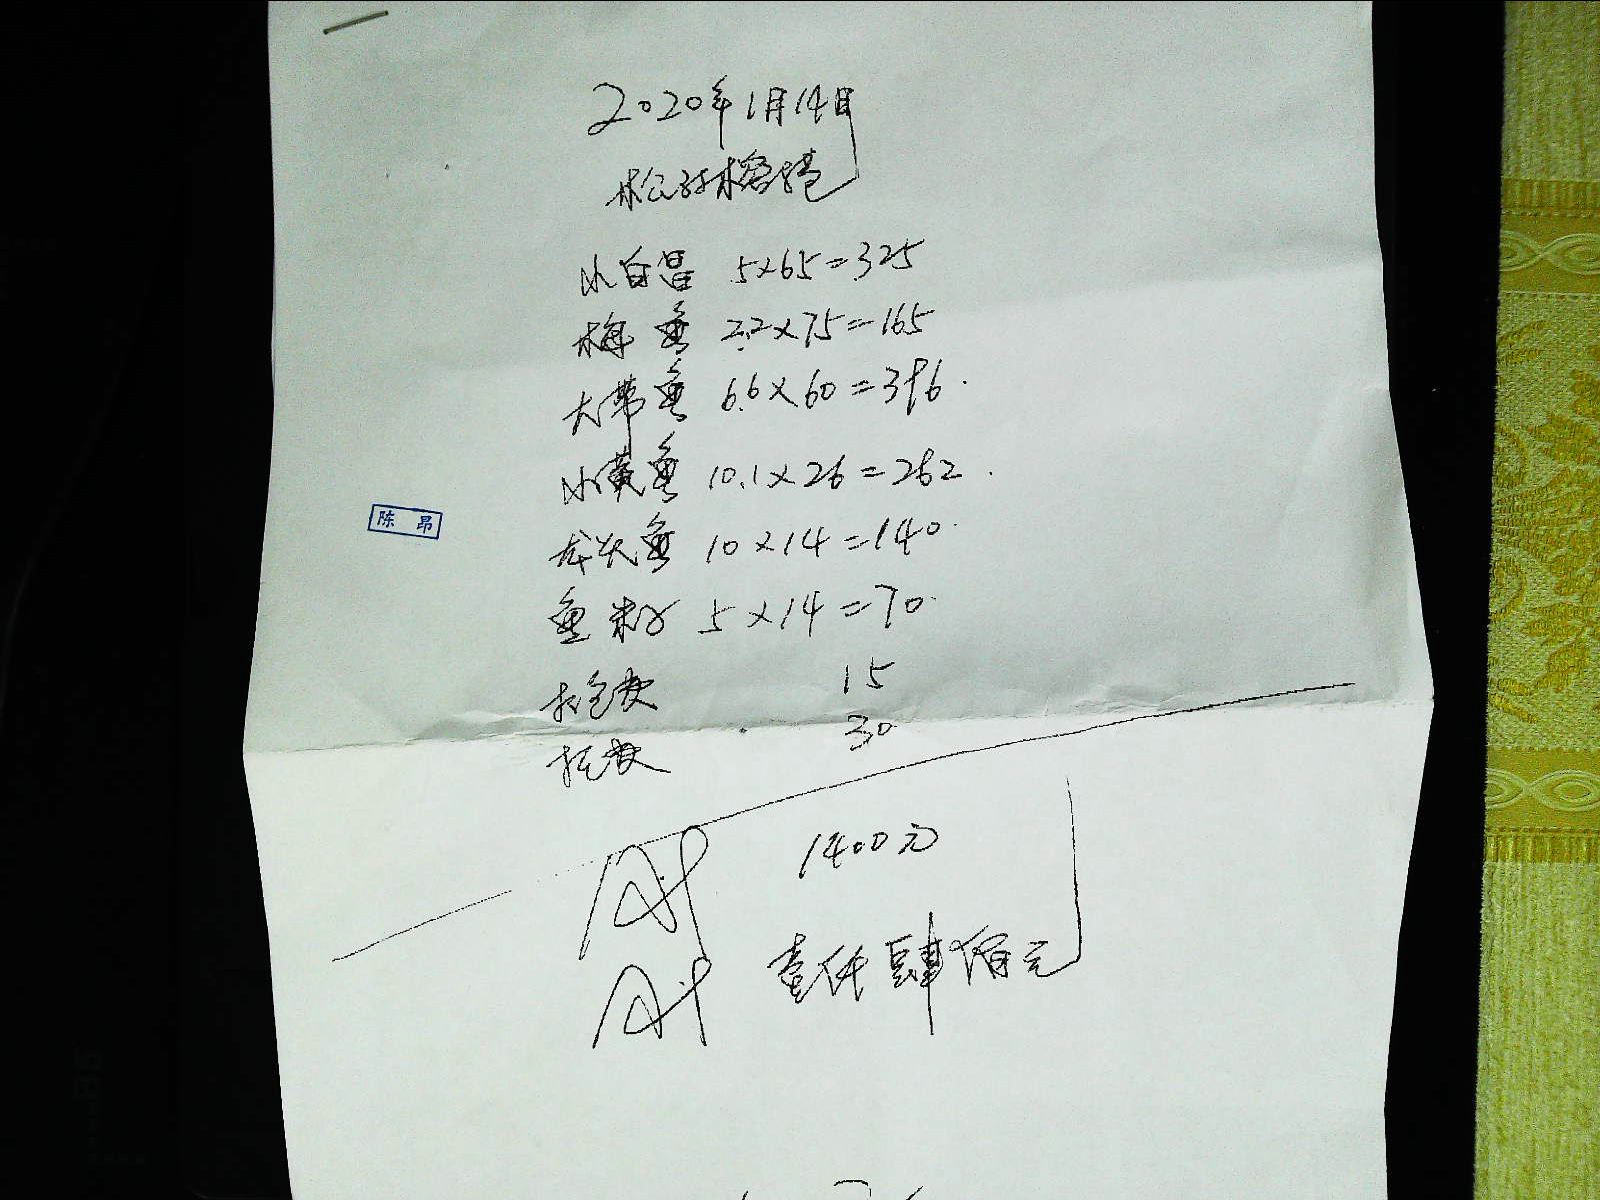 2020年1月14日
小白昌 5×65=325
梅鱼 2.2×75=165
大带鱼 6.6×60=396.
小黄鱼 10.1×26=262.
陈 昂
龙头鱼 10×14=140.
鱼籽 5×14=70.
打包费 15
托费 30
1400元
壹仟肆佰元